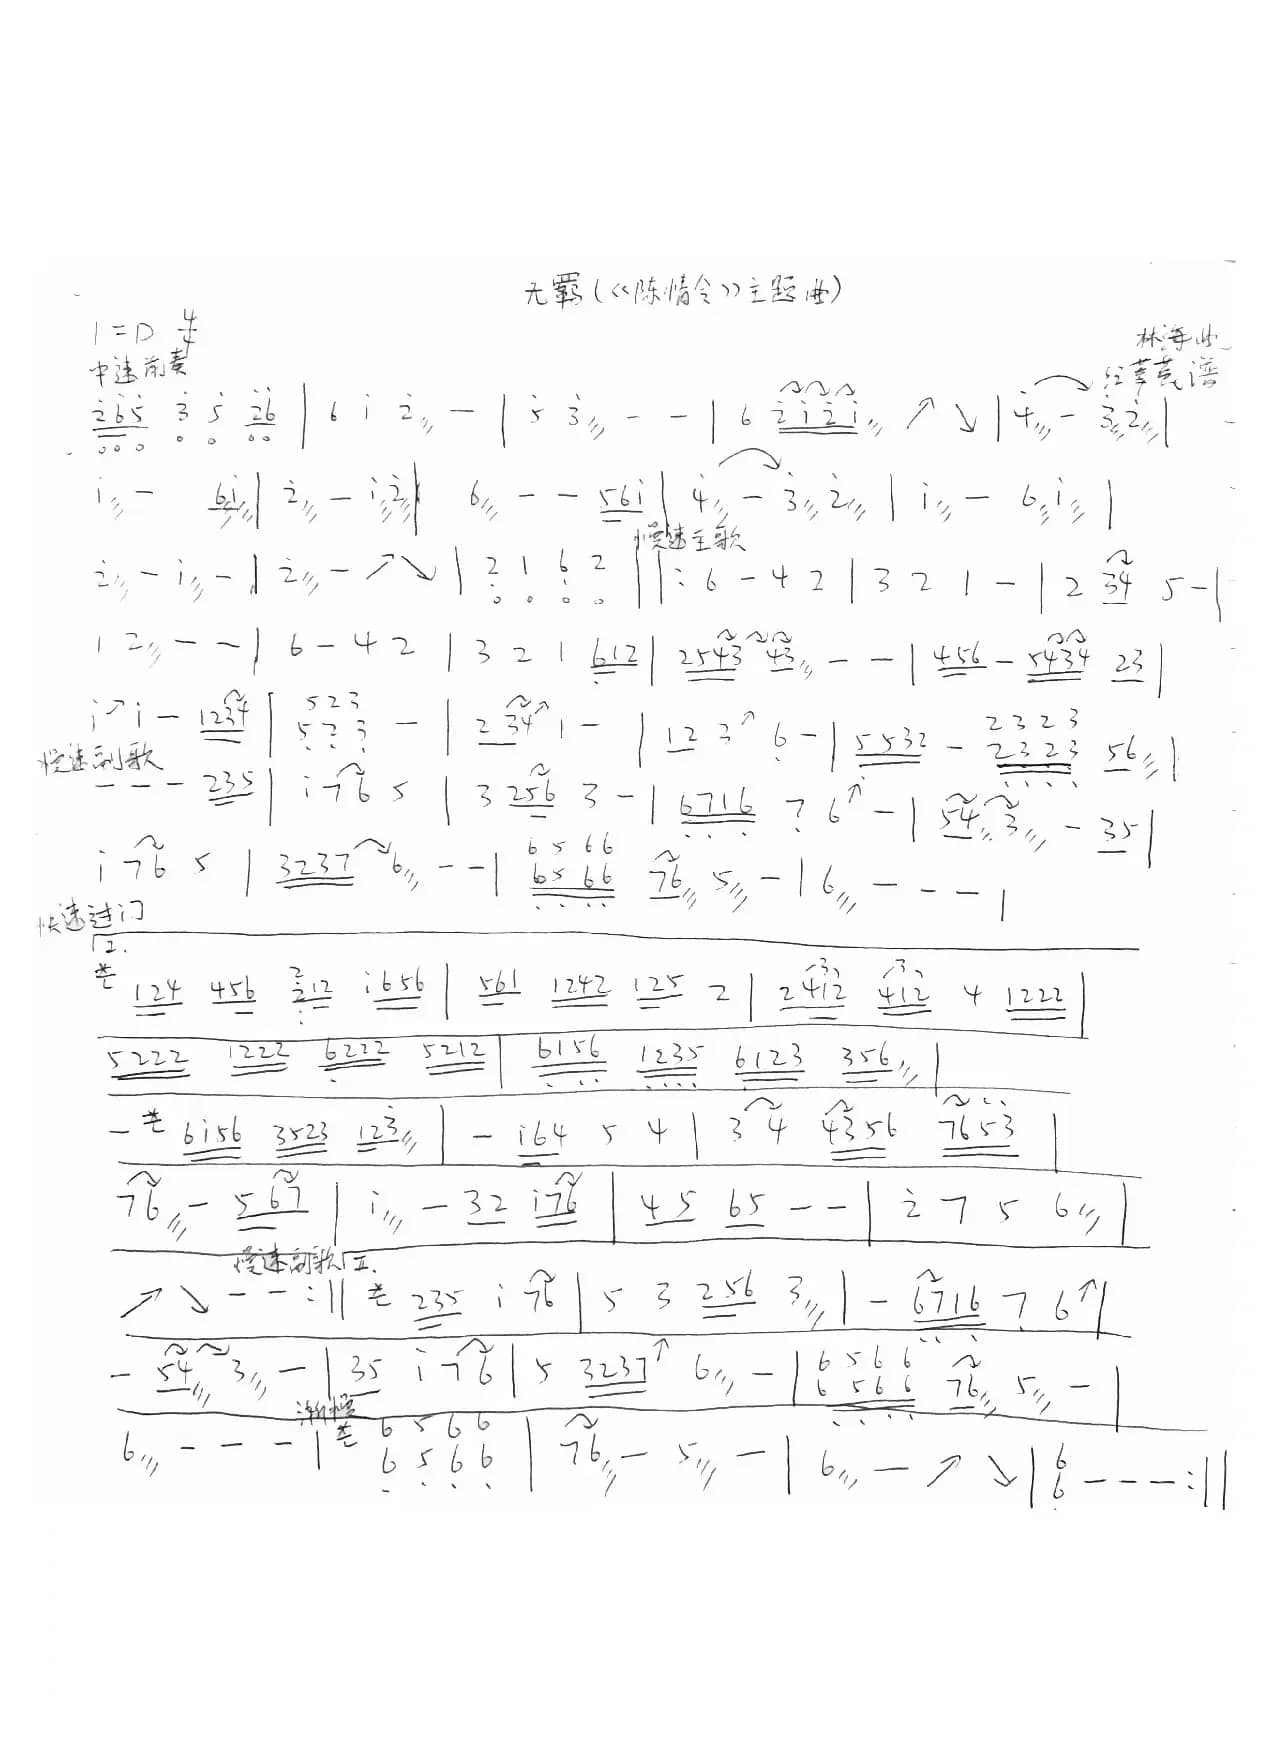 无羁(《陈情令》主题曲)
1=D 4/4
林海曲
中速前奏
谱
2̇6̇5̇ 3̇ 5̇ 2̇6̇ | 6 i 2̇ - | 5̇ 3̇ - - | 6 2̇i2̇i ↗ ↘ | 4̇ - 3̇2̇ |
i - 6i | 2̇ - i2̇ | 6 - - 56i | 4̇ - 3̇ 2̇ | i - 6 i |
慢速主歌
2̇ - i - | 2̇ - ↗ ↘ | 2 1 6 2 ‖: 6 - 4 2 | 3 2 1 - | 2 34 5 - |
1 2 - - | 6 - 4 2 | 3 2 1 612 | 2543 43 - - | 456 - 5434 23 |
i ↗ i - 1234 | 523 523 - | 2 34 ↗ 1 - | 12 3 ↗ 6 - | 5532 - 2323 2323 56 |
慢速副歌
- - - 235 | i 76 5 | 3 256 3 - | 6716 7 6 ↗ - | 54 3 - 35 |
i 76 5 | 3237 6 - - | 6566 6566 76 5 - | 6 - - - |
快速过门
I.
124 456 2 212 i656 | 561 1242 125 2 | 2412 412 4 1222 |
5222 1222 6222 5212 | 6156 1235 6123 356 |
- 6i56 3523 123̇ | - i64 5 4 | 3 4 4356 7653 |
76 - 567 | i - 32 i76 | 45 65 - - | 2̇ 7 5 6 |
慢速副歌 II.
↗ ↘ - - :‖ 235 i 76 | 5 3 256 3 | - 6716 7 6 ↗ |
- 54 3 - | 35 i 76 | 5 3237 ↗ 6 - | 6566 6566 76 5 - |
渐慢
6 - - - | 6566 6566 | 76 - 5 - | 6 - ↗ ↘ | 6 6 - - - :‖